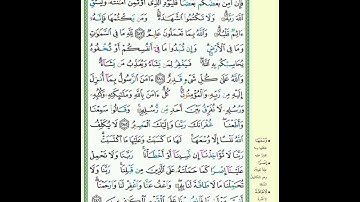 فَإِنْ أَمِنَ بَعْضُكُم بَعْضًا فَلْيُؤَدِّ ٱلَّذِى ٱؤْتُمِنَ أَمَٰنَتَهُۥ وَلْيَتَّقِ
ٱللَّهَ رَبَّهُۥ وَلَا تَكْتُمُوا۟ ٱلشَّهَٰدَةَ وَمَن يَكْتُمْهَا فَإِنَّهُۥٓ
ءَاثِمٌ قَلْبُهُۥ وَٱللَّهُ بِمَا تَعْمَلُونَ عَلِيمٌ ٢٨٣ لِّلَّهِ مَا فِى ٱلسَّمَٰوَٰتِ
وَمَا فِى ٱلْأَرْضِ وَإِن تُبْدُوا۟ مَا فِىٓ أَنفُسِكُمْ أَوْ تُخْفُوهُ
يُحَاسِبْكُم بِهِ ٱللَّهُ فَيَغْفِرُ لِمَن يَشَآءُ وَيُعَذِّبُ مَن يَشَآءُ
وَٱللَّهُ عَلَىٰ كُلِّ شَىْءٍ قَدِيرٌ ٢٨٤ ءَامَنَ ٱلرَّسُولُ بِمَآ أُنزِلَ
إِلَيْهِ مِن رَّبِّهِۦ وَٱلْمُؤْمِنُونَ كُلٌّ ءَامَنَ بِٱللَّهِ وَمَلَٰٓئِكَتِهِۦ وَكُتُبِهِۦ
وَرُسُلِهِۦ لَا نُفَرِّقُ بَيْنَ أَحَدٍ مِّن رُّسُلِهِۦ وَقَالُوا۟ سَمِعْنَا
وَأَطَعْنَا غُفْرَانَكَ رَبَّنَا وَإِلَيْكَ ٱلْمَصِيرُ ٢٨٥ لَا يُكَلِّفُ
ٱللَّهُ نَفْسًا إِلَّا وُسْعَهَا لَهَا مَا كَسَبَتْ وَعَلَيْهَا مَا ٱكْتَسَبَتْ
رَبَّنَا لَا تُؤَاخِذْنَآ إِن نَّسِينَآ أَوْ أَخْطَأْنَا رَبَّنَا وَلَا تَحْمِلْ
عَلَيْنَآ إِصْرًا كَمَا حَمَلْتَهُۥ عَلَى ٱلَّذِينَ مِن قَبْلِنَا رَبَّنَا وَلَا
تُحَمِّلْنَا مَا لَا طَاقَةَ لَنَا بِهِۦ وَٱعْفُ عَنَّا وَٱغْفِرْ لَنَا وَٱرْحَمْنَآ